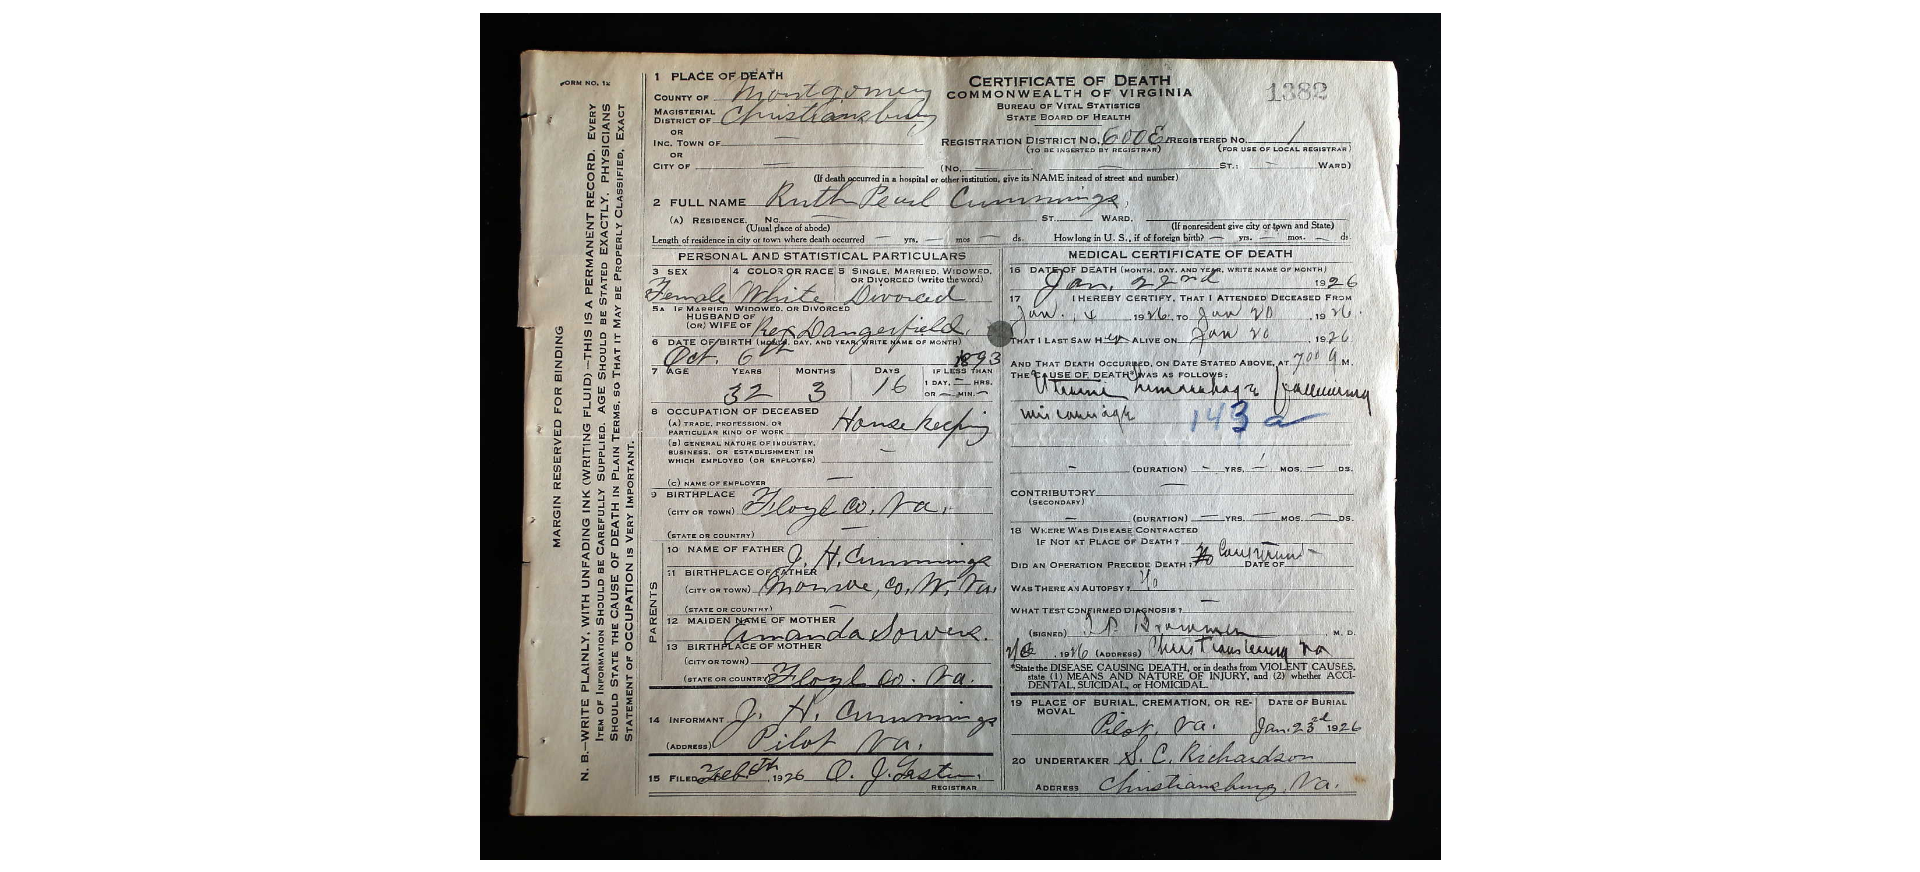 FORM NO. 12
MARGIN RESERVED FOR BINDING
N. B.—WRITE PLAINLY, WITH UNFADING INK (WRITING FLUID)—THIS IS A PERMANENT RECORD. EVERY
ITEM OF INFORMATION SHOULD BE CAREFULLY SUPPLIED. AGE SHOULD BE STATED EXACTLY. PHYSICIANS
SHOULD STATE THE CAUSE OF DEATH IN PLAIN TERMS, SO THAT IT MAY BE PROPERLY CLASSIFIED. EXACT
STATEMENT OF OCCUPATION IS VERY IMPORTANT.
1 PLACE OF DEATH
COUNTY OF Montgomery
MAGISTERIAL DISTRICT OF Christiansburg
OR
INC. TOWN OF —
OR
CITY OF —
CERTIFICATE OF DEATH
COMMONWEALTH OF VIRGINIA
BUREAU OF VITAL STATISTICS
STATE BOARD OF HEALTH
1382
REGISTRATION DISTRICT NO. 600E REGISTERED NO. 1
(TO BE INSERTED BY REGISTRAR) (FOR USE OF LOCAL REGISTRAR)
(NO. — ST.; — WARD)
(If death occurred in a hospital or other institution, give its NAME instead of street and number)
2 FULL NAME Ruth Pearl Cummings,
(A) RESIDENCE. No. — ST. WARD.
(Usual place of abode) (If nonresident give city or town and State)
Length of residence in city or town where death occurred — yrs. — mos — ds. How long in U. S., if of foreign birth? — yrs. — mos. — ds
PERSONAL AND STATISTICAL PARTICULARS
3 SEX 4 COLOR OR RACE 5 SINGLE, MARRIED, WIDOWED, OR DIVORCED (write the word)
Female White Divorced
5A IF MARRIED, WIDOWED, OR DIVORCED
HUSBAND OF
(OR) WIFE OF Rex Dangerfield.
6 DATE OF BIRTH (MONTH, DAY, AND YEAR, WRITE NAME OF MONTH)
Oct. 6th 1893
7 AGE YEARS MONTHS DAYS IF LESS THAN
32 3 16 1 DAY, — HRS.
OR — MIN. —
8 OCCUPATION OF DECEASED
(A) TRADE, PROFESSION, OR
PARTICULAR KIND OF WORK House keeping
(B) GENERAL NATURE OF INDUSTRY,
BUSINESS, OR ESTABLISHMENT IN
WHICH EMPLOYED (OR EMPLOYER) —
(C) NAME OF EMPLOYER —
9 BIRTHPLACE
(CITY OR TOWN) Floyd Co. Va.
(STATE OR COUNTRY) —
PARENTS
10 NAME OF FATHER J. H. Cummings
11 BIRTHPLACE OF FATHER
(CITY OR TOWN) Monroe, Co, W. Va.
(STATE OR COUNTRY) —
12 MAIDEN NAME OF MOTHER
Amanda Sowers.
13 BIRTHPLACE OF MOTHER
(CITY OR TOWN)
(STATE OR COUNTRY) Floyd Co. Va.
14 INFORMANT J. H. Cummings
(ADDRESS) Pilot Va.
15 FILED Feb. 1926 O. J.
REGISTRAR
MEDICAL CERTIFICATE OF DEATH
16 DATE OF DEATH (MONTH, DAY, AND YEAR, WRITE NAME OF MONTH)
Jan. 22nd 1926
17 I HEREBY CERTIFY, THAT I ATTENDED DECEASED FROM
Jan. 4 1926, TO Jan 20, 1926.
THAT I LAST SAW HER ALIVE ON Jan 20, 1926
AND THAT DEATH OCCURRED, ON DATE STATED ABOVE, AT 7:00 A M.
THE CAUSE OF DEATH* WAS AS FOLLOWS:
Uterine hemorrhage following
miscarriage 143 a
— (DURATION) — YRS. — MOS. — DS.
CONTRIBUTORY —
(SECONDARY)
— (DURATION) — YRS. — MOS. — DS.
18 WHERE WAS DISEASE CONTRACTED
IF NOT AT PLACE OF DEATH?
DID AN OPERATION PRECEDE DEATH? No DATE OF
WAS THERE AN AUTOPSY? No
WHAT TEST CONFIRMED DIAGNOSIS? —
(SIGNED) M. D.
1926 (ADDRESS) Christiansburg Va
*State the DISEASE CAUSING DEATH, or in deaths from VIOLENT CAUSES,
state (1) MEANS AND NATURE OF INJURY, and (2) whether ACCI-
DENTAL, SUICIDAL, or HOMICIDAL.
19 PLACE OF BURIAL, CREMATION, OR RE-MOVAL DATE OF BURIAL
Pilot, Va. Jan. 23rd 1926
20 UNDERTAKER S. C. Richardson
ADDRESS Christiansburg, Va.